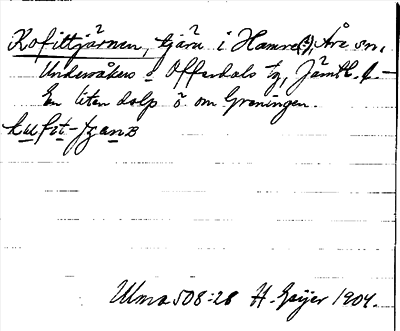 Kofittjärnen, tjärn i Hamre(?), Åre sn,
Undersåkers o Offerdals tg, Jämtl. l.—
En liten dalp ö. om Greningen.
Ulma 508:28 H. Geijer 1904.